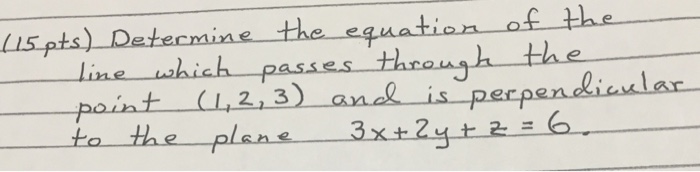 (15 pts) Determine the equation of the
line which passes through the
point (1,2,3) and is perpendicular
to the plane 3x+2y+z=6.